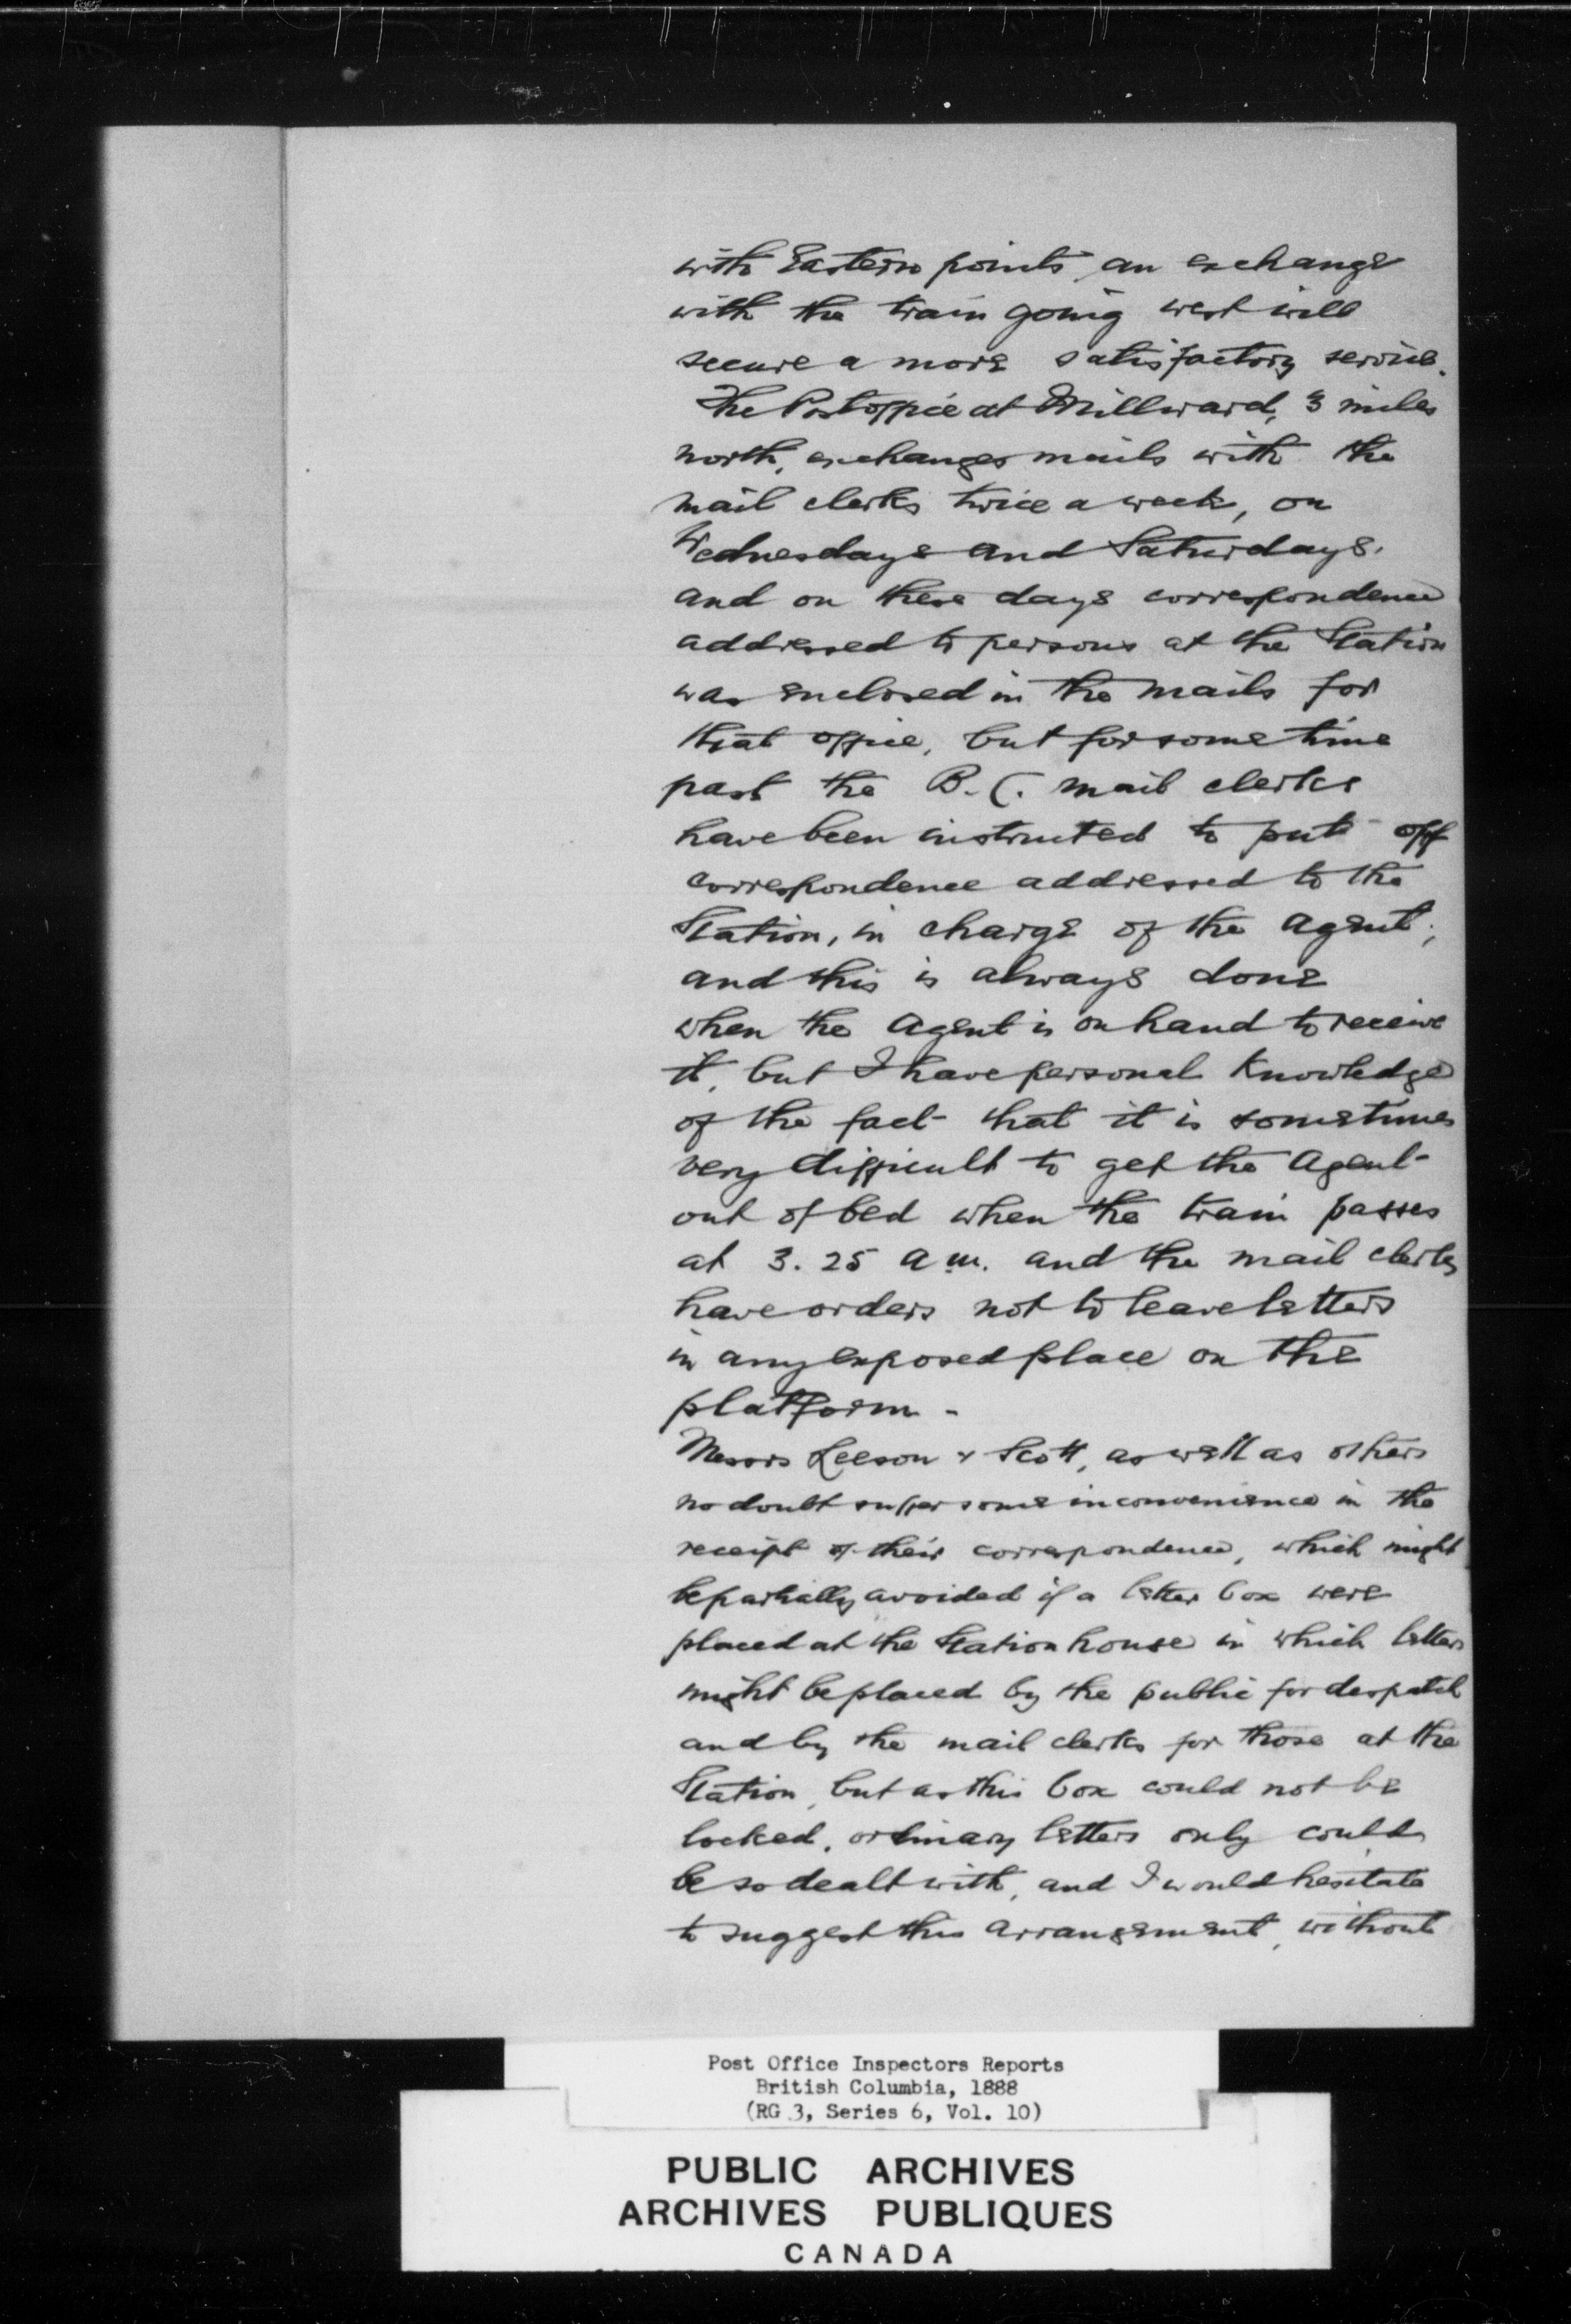 with Eastern points, an exchange
with the train going west will
secure a more satisfactory service.
The Postoffice at Millward, 3 miles
north, exchanges mails with the
mail clerks twice a week, on
Wednesdays and Saturdays,
and on these days correspondence
addressed to persons at the Station
was enclosed in the mails for
that office, but for some time
past the B.C. mail clerks
have been instructed to put off
correspondence addressed to the
Station, in charge of the Agent;
and this is always done
when the Agent is on hand to receive
it, but I have personal knowledge
of the fact that it is sometimes
very difficult to get the Agent
out of bed when the train passes
at 3.25 a.m. and the mail clerks
have orders not to leave letters
in any exposed place on the
platform -
Messrs Leeson & Scott, as well as others
no doubt suffer some inconvenience in the
receipt of their correspondence, which might
be partially avoided if a letter box were
placed at the Station house in which letters
might be placed by the public for despatch
and by the mail clerks for those at the
Station, but as this box could not be
locked, ordinary letters only could
be so dealt with, and I would hesitate
to suggest this arrangement, without
Post Office Inspectors Reports
British Columbia, 1888
(RG 3, Series 6, Vol. 10)
PUBLIC ARCHIVES
ARCHIVES PUBLIQUES
CANADA